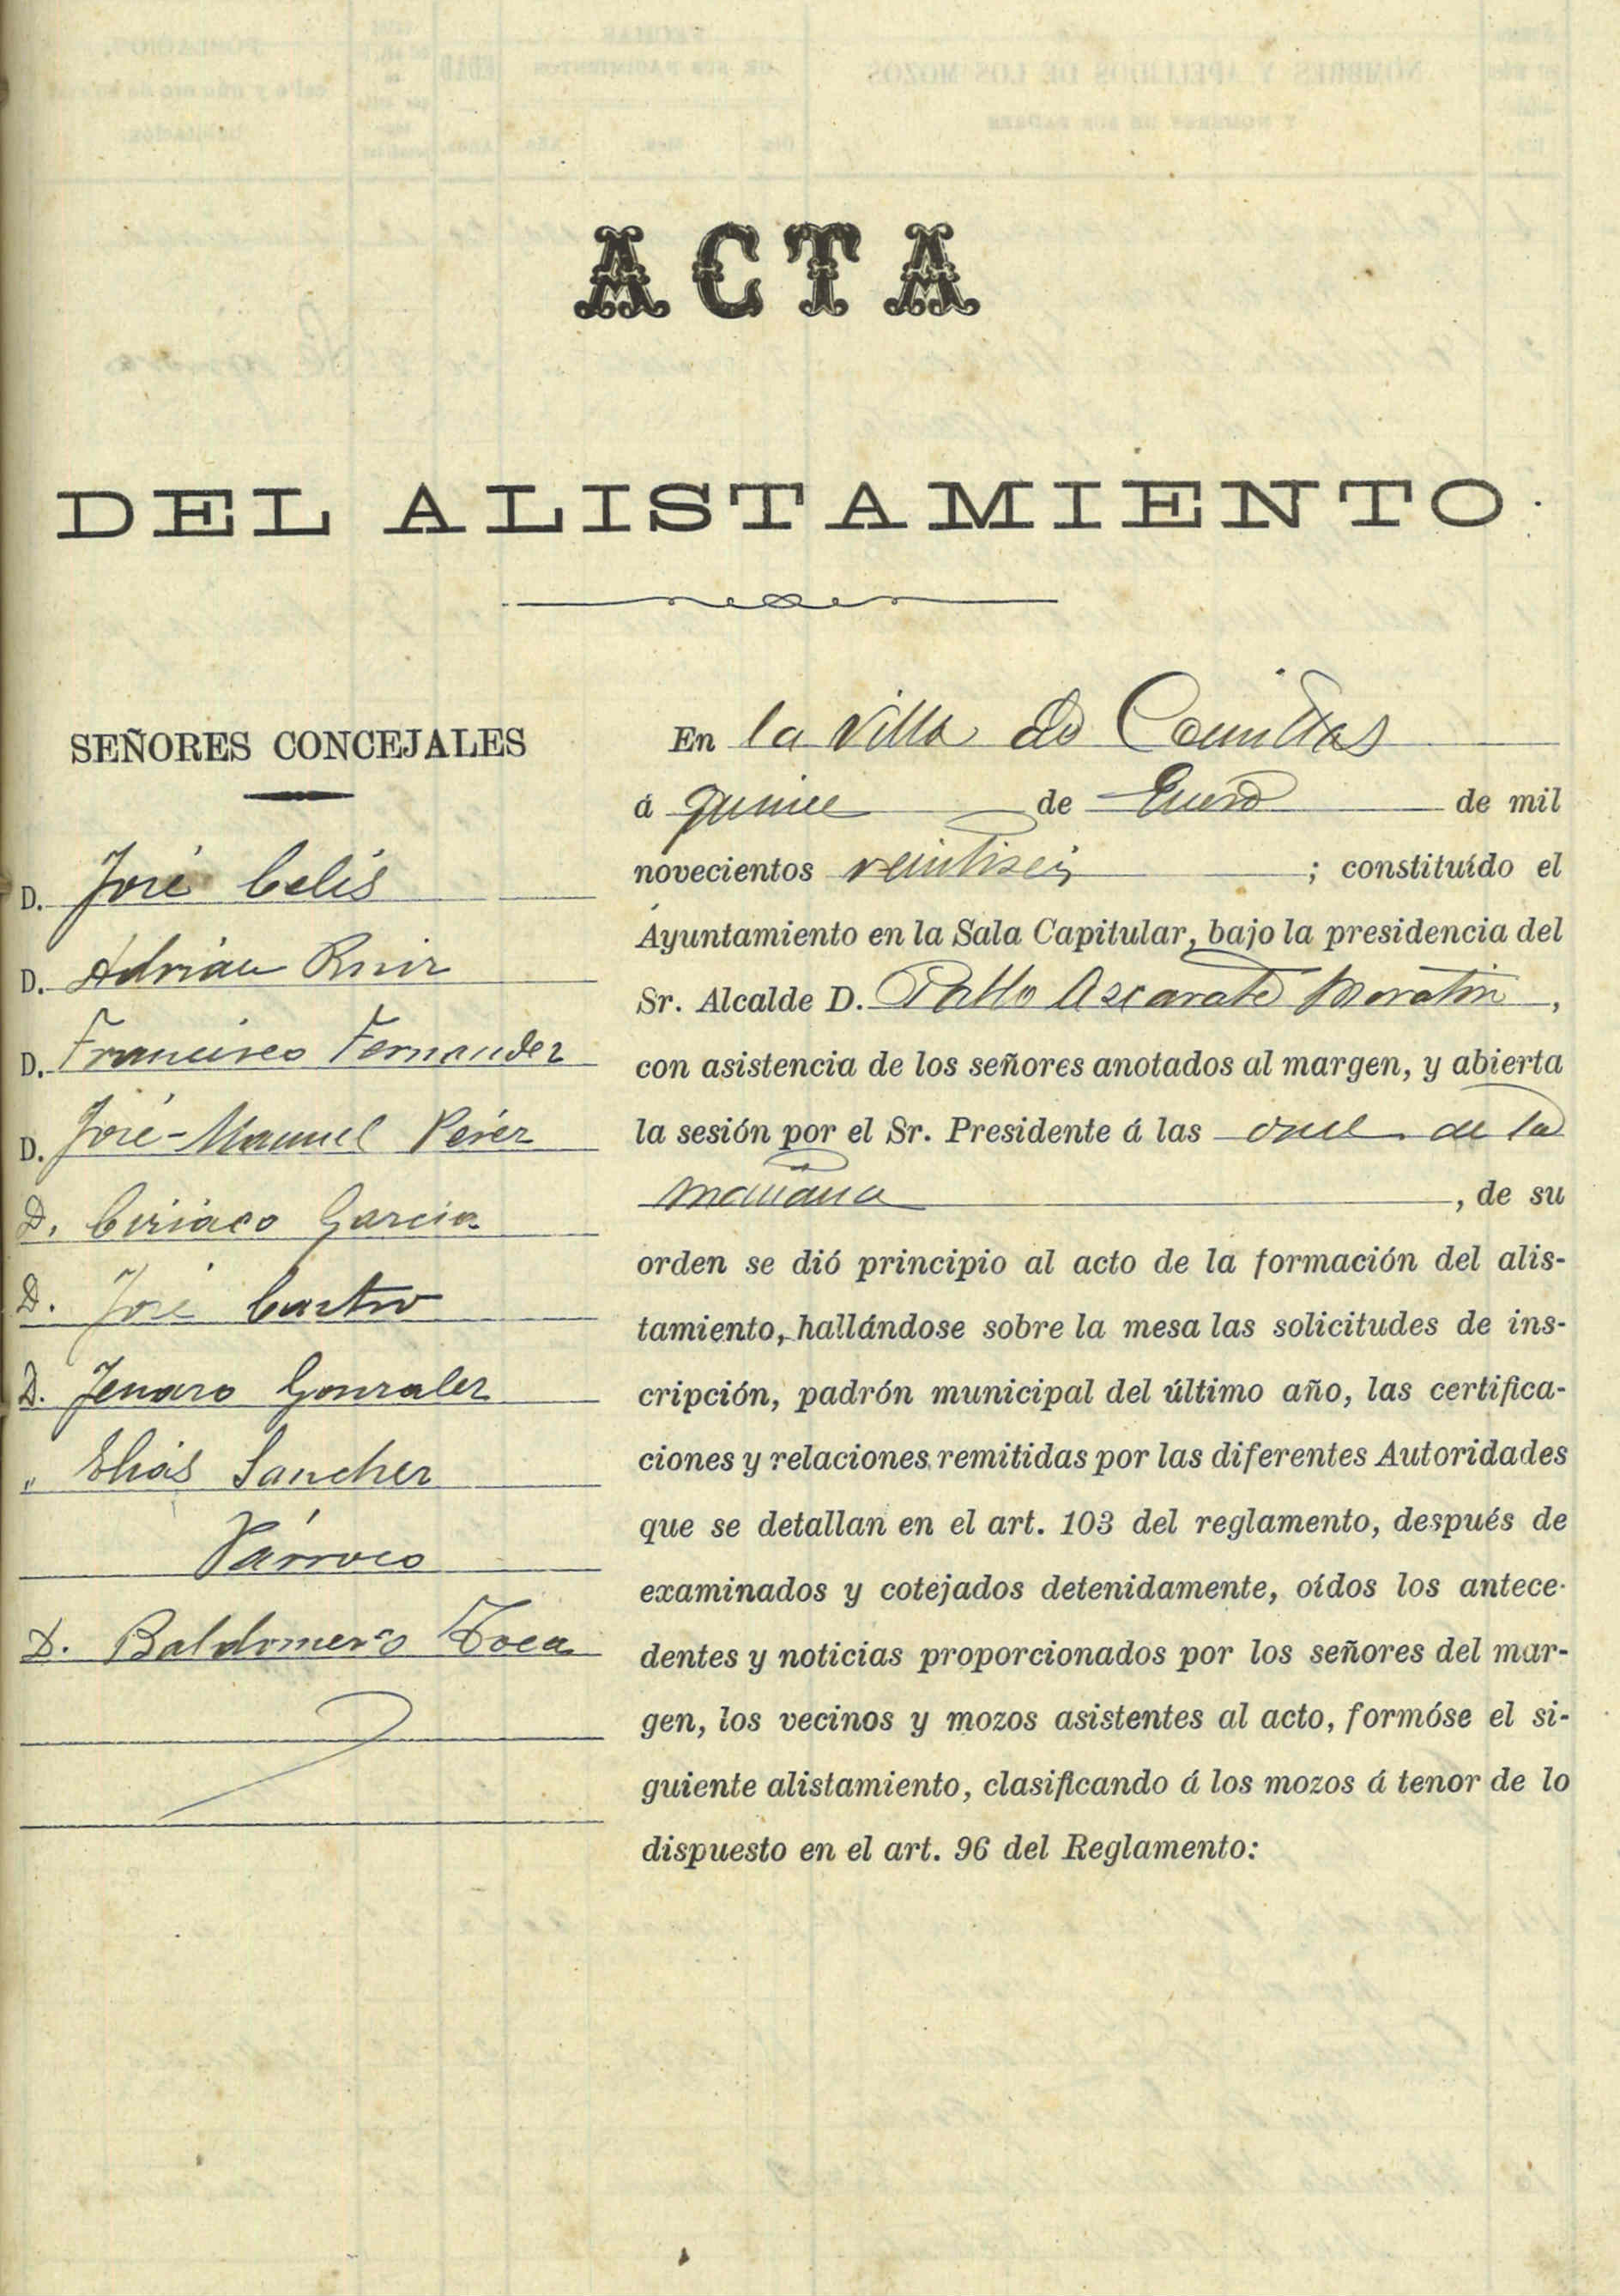 ACTA
DEL ALISTAMIENTO
SEÑORES CONCEJALES
D. José Celis
D. Adrián Ruiz
D. Francisco Fernandez
D. José-Manuel Pérez
D. Ciriaco Garcia
D. José Castro
D. Jenaro Gonzalez
" Elias Sanchez
Párroco
D. Baldomero Toca
En la Villa de Comillas
á quince de Enero de mil
novecientos veintiseis ; constituído el
Ayuntamiento en la Sala Capitular, bajo la presidencia del
Sr. Alcalde D. Pablo Azcarate Moratin,
con asistencia de los señores anotados al margen, y abierta
la sesión por el Sr. Presidente á las once de la
mañana , de su
orden se dió principio al acto de la formación del alis-
tamiento, hallándose sobre la mesa las solicitudes de ins-
cripción, padrón municipal del último año, las certifica-
ciones y relaciones remitidas por las diferentes Autoridades
que se detallan en el art. 103 del reglamento, después de
examinados y cotejados detenidamente, oídos los antece-
dentes y noticias proporcionados por los señores del mar-
gen, los vecinos y mozos asistentes al acto, formóse el si-
guiente alistamiento, clasificando á los mozos á tenor de lo
dispuesto en el art. 96 del Reglamento: